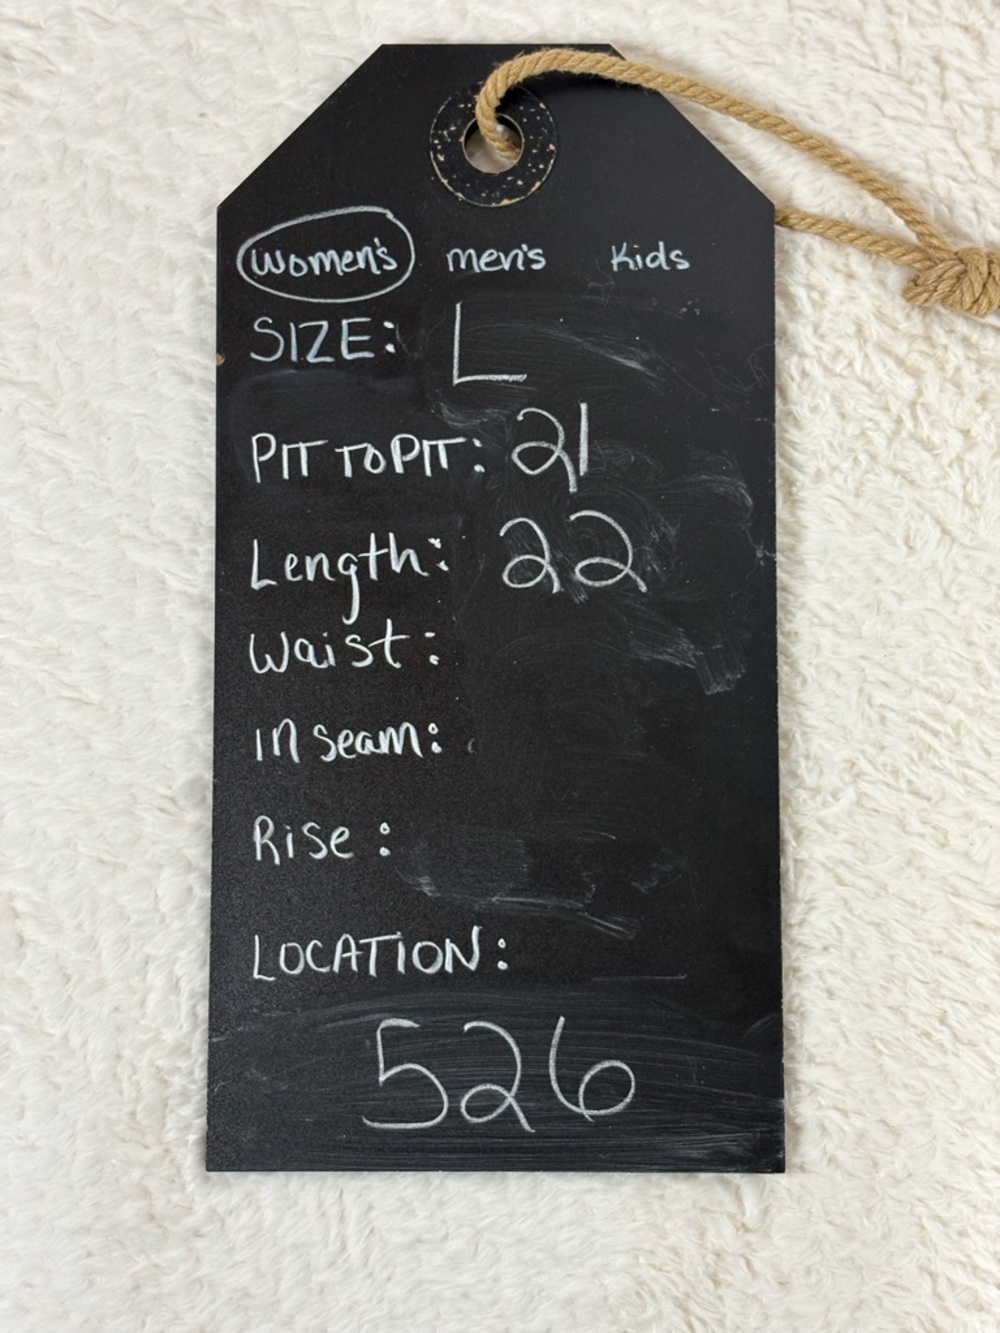 women's men's Kids
SIZE: L
PIT TO PIT: 21
Length: 22
Waist:
in seam:
Rise:
LOCATION:
526